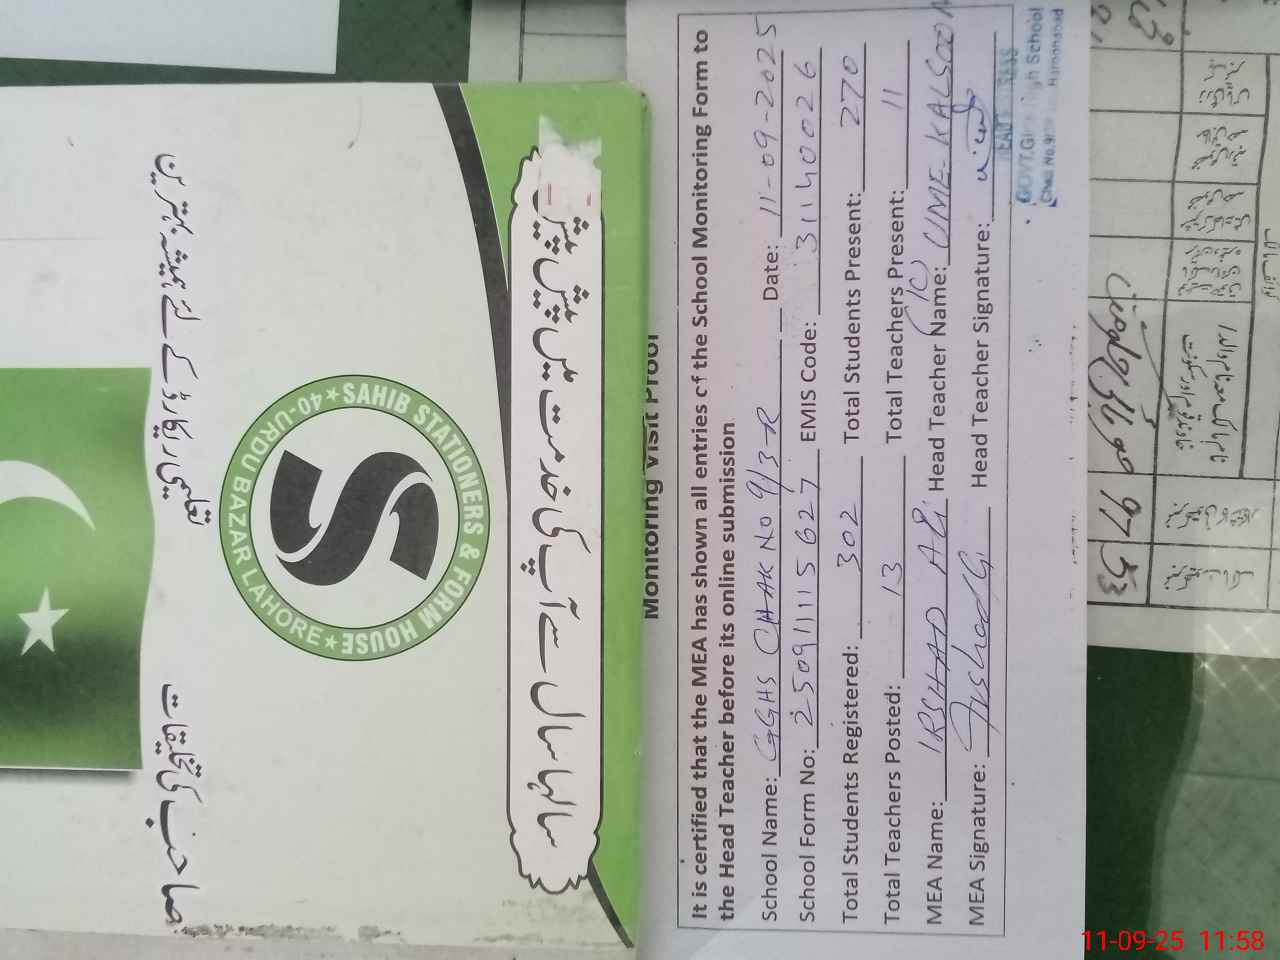 صاحب کی تخلیقات
تعلیمی ریکارڈ کے لئے ہمیشہ بہترین
SAHIB STATIONERS & FORM HOUSE
40-URDU BAZAR LAHORE
سالہا سال سے آپ کی خدمت میں پیش پیش
Monitoring Visit Proof
It is certified that the MEA has shown all entries of the School Monitoring Form to
the Head Teacher before its online submission
School Name: GGHS CHAK No 9/3-R Date: 11-09-2025
School Form No: 25091115627 EMIS Code: 31140026
Total Students Registered: 302 Total Students Present: 270
Total Teachers Posted: 13 Total Teachers Present: 11
MEA Name: IRSHAD ALI Head Teacher Name: UME-KALSOOM
MEA Signature: Irshad Head Teacher Signature:
GOVT. High School
Chak No.9
Haroonabad
97
53
11-09-25 11:58